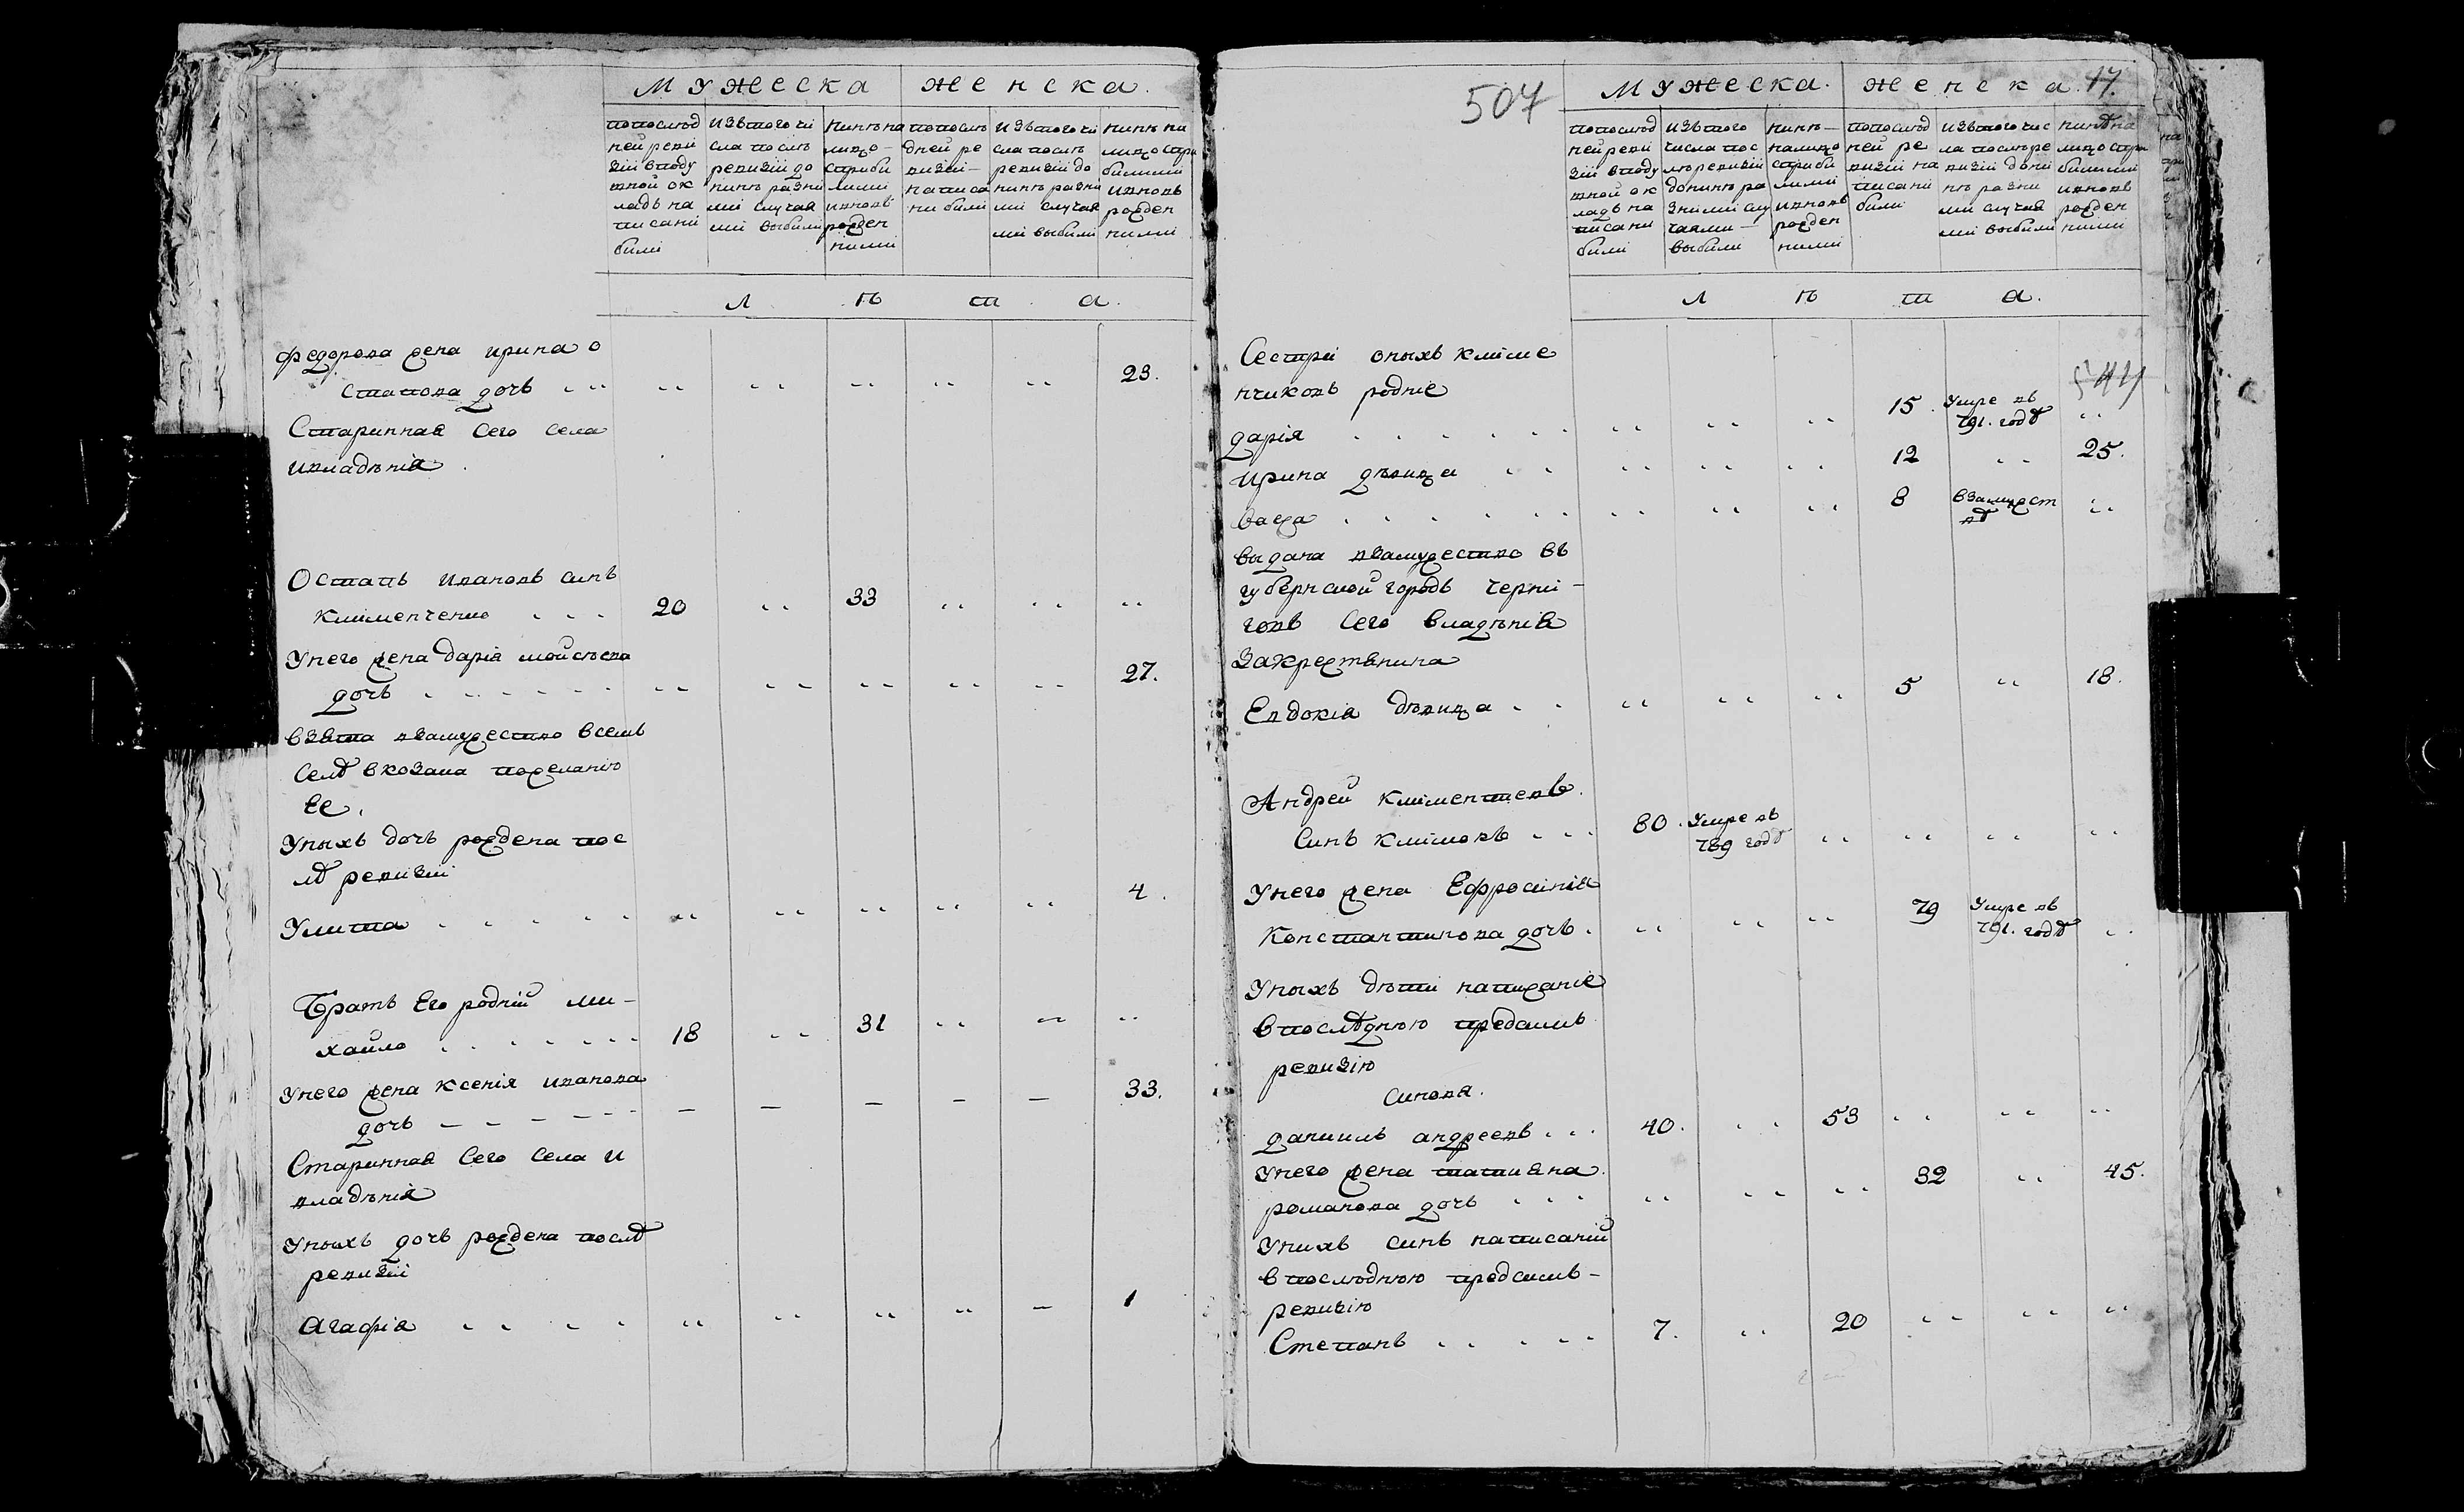 Мужеска женска.
попослѣд
ней реви
зіи вподу
шной ок
ладъ на
писани
били
изътого чи
сла послѣ
ревизіи до
нинѣ разни
ми случая
ми выбили
нинѣ на
лицо
стриби
лими
ивновь
рожден
ними
попослѣ
дней ре
визіи
написа
ни били
изътого чи
сла послѣ
ревизіи до
нинѣ разни
ми случая
ми выбили
нинѣ на
лицо стри
билими
ивновь
рожден
ними
л ѣ т а.
федорова жена ирина о
статова дочь 23.
Старинная сего села
ивладѣнія.
Остапъ ивановъ синъ
клименченко 20 33
Унего жена дарія мойсѣева
дочь 27.
взята взамужество всемъ
селѣ вкозака пожеланію
Ее.
Унихъ дочь рождена пос
лѣ ревизіи
Улита 4.
Братъ Его родній ми-
хайло 18 31
Унего жена ксенія иванова
дочь 33.
Старинная сего села и
владѣнія
Унихъ дочь рождена послѣ
ревизіи
Агафія 1
507
Мужеска. женска. 17.
попослѣд
ней реви
зіи вподу
шной ок
ладъ на
писани
били
изътого
числа пос
лѣ ревизіи
донинѣ ра
зними слу
чаями
выбили
нинѣ
налицо
стриби
лими
ивновь
рожден
ними
попослѣд
ней ре
визіи на
писани
били
изътого чис
ла послѣ ре
визіи дони
нѣ разни
ми случая
ми выбили
нинѣ на
лицо стри
билими
ивновь
рожден
ними
л ѣ т а.
Сестри онихъ климе
нчиковъ родніе
дарія 15 Умре въ
791. годѣ
ирина дѣвица 12 25.
васса 8 взамужест
вѣ
выдана взамужество въ
губернской городъ черни-
говъ сего владѣнія
закрестянина
Евдокія дѣвица 5 18.
Андрей климентіевъ
Синъ климовъ 80. Умре въ
789 годѣ
Унего жена Ефросинія
Константинова дочь. 79 Умре въ
791. годѣ
Унихъ дѣти написаніе
впослѣднюю предсимъ
ревизію
Синовя.
даниилъ андреевъ 40. 53
Унего жена татияна
романова дочь 32 45.
Унихъ синъ написаній
впослѣднюю предсимъ-
ревизію
Степанъ 7. 20